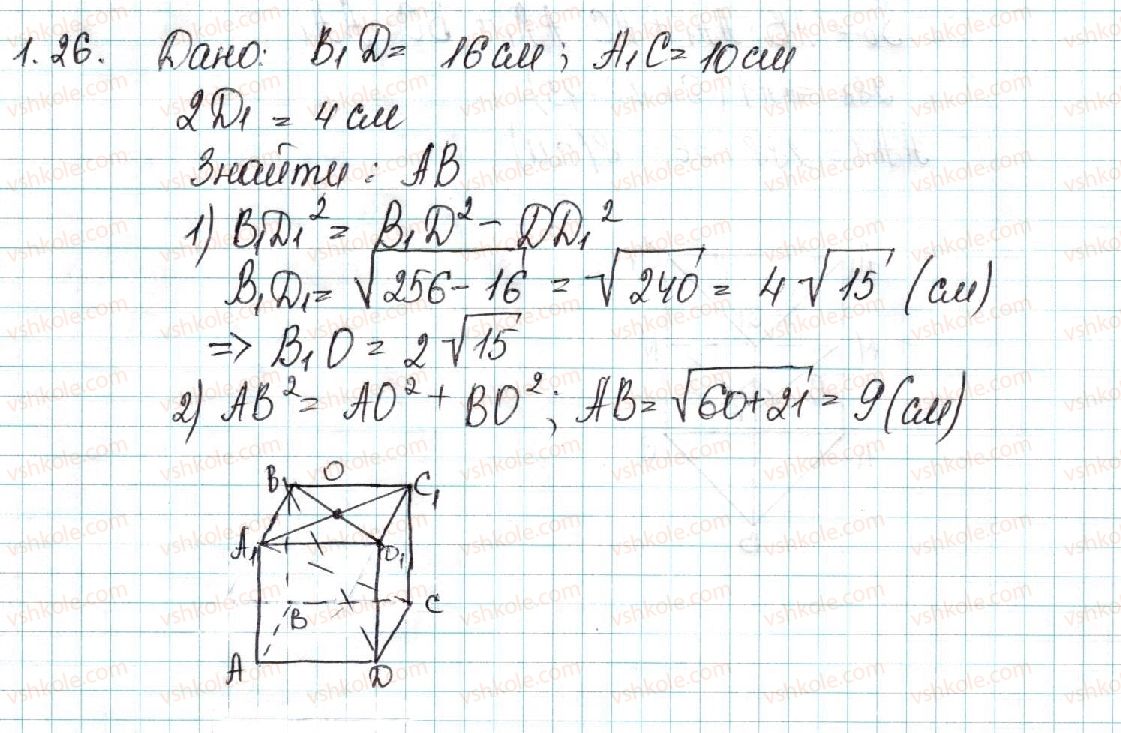 1.26. Дано: B₁D = 16 см; A₁C = 10 см
2D₁ = 4 см
Знайти: AB
1) B₁D₁² = B₁D² − DD₁²
B₁D₁ = √256−16 = √240 = 4√15 (см)
=> B₁O = 2√15
2) AB² = AO² + BO²; AB = √60+21 = 9 (см)
B₁ O C₁
A₁ D₁
B C
A D
vshkole.com